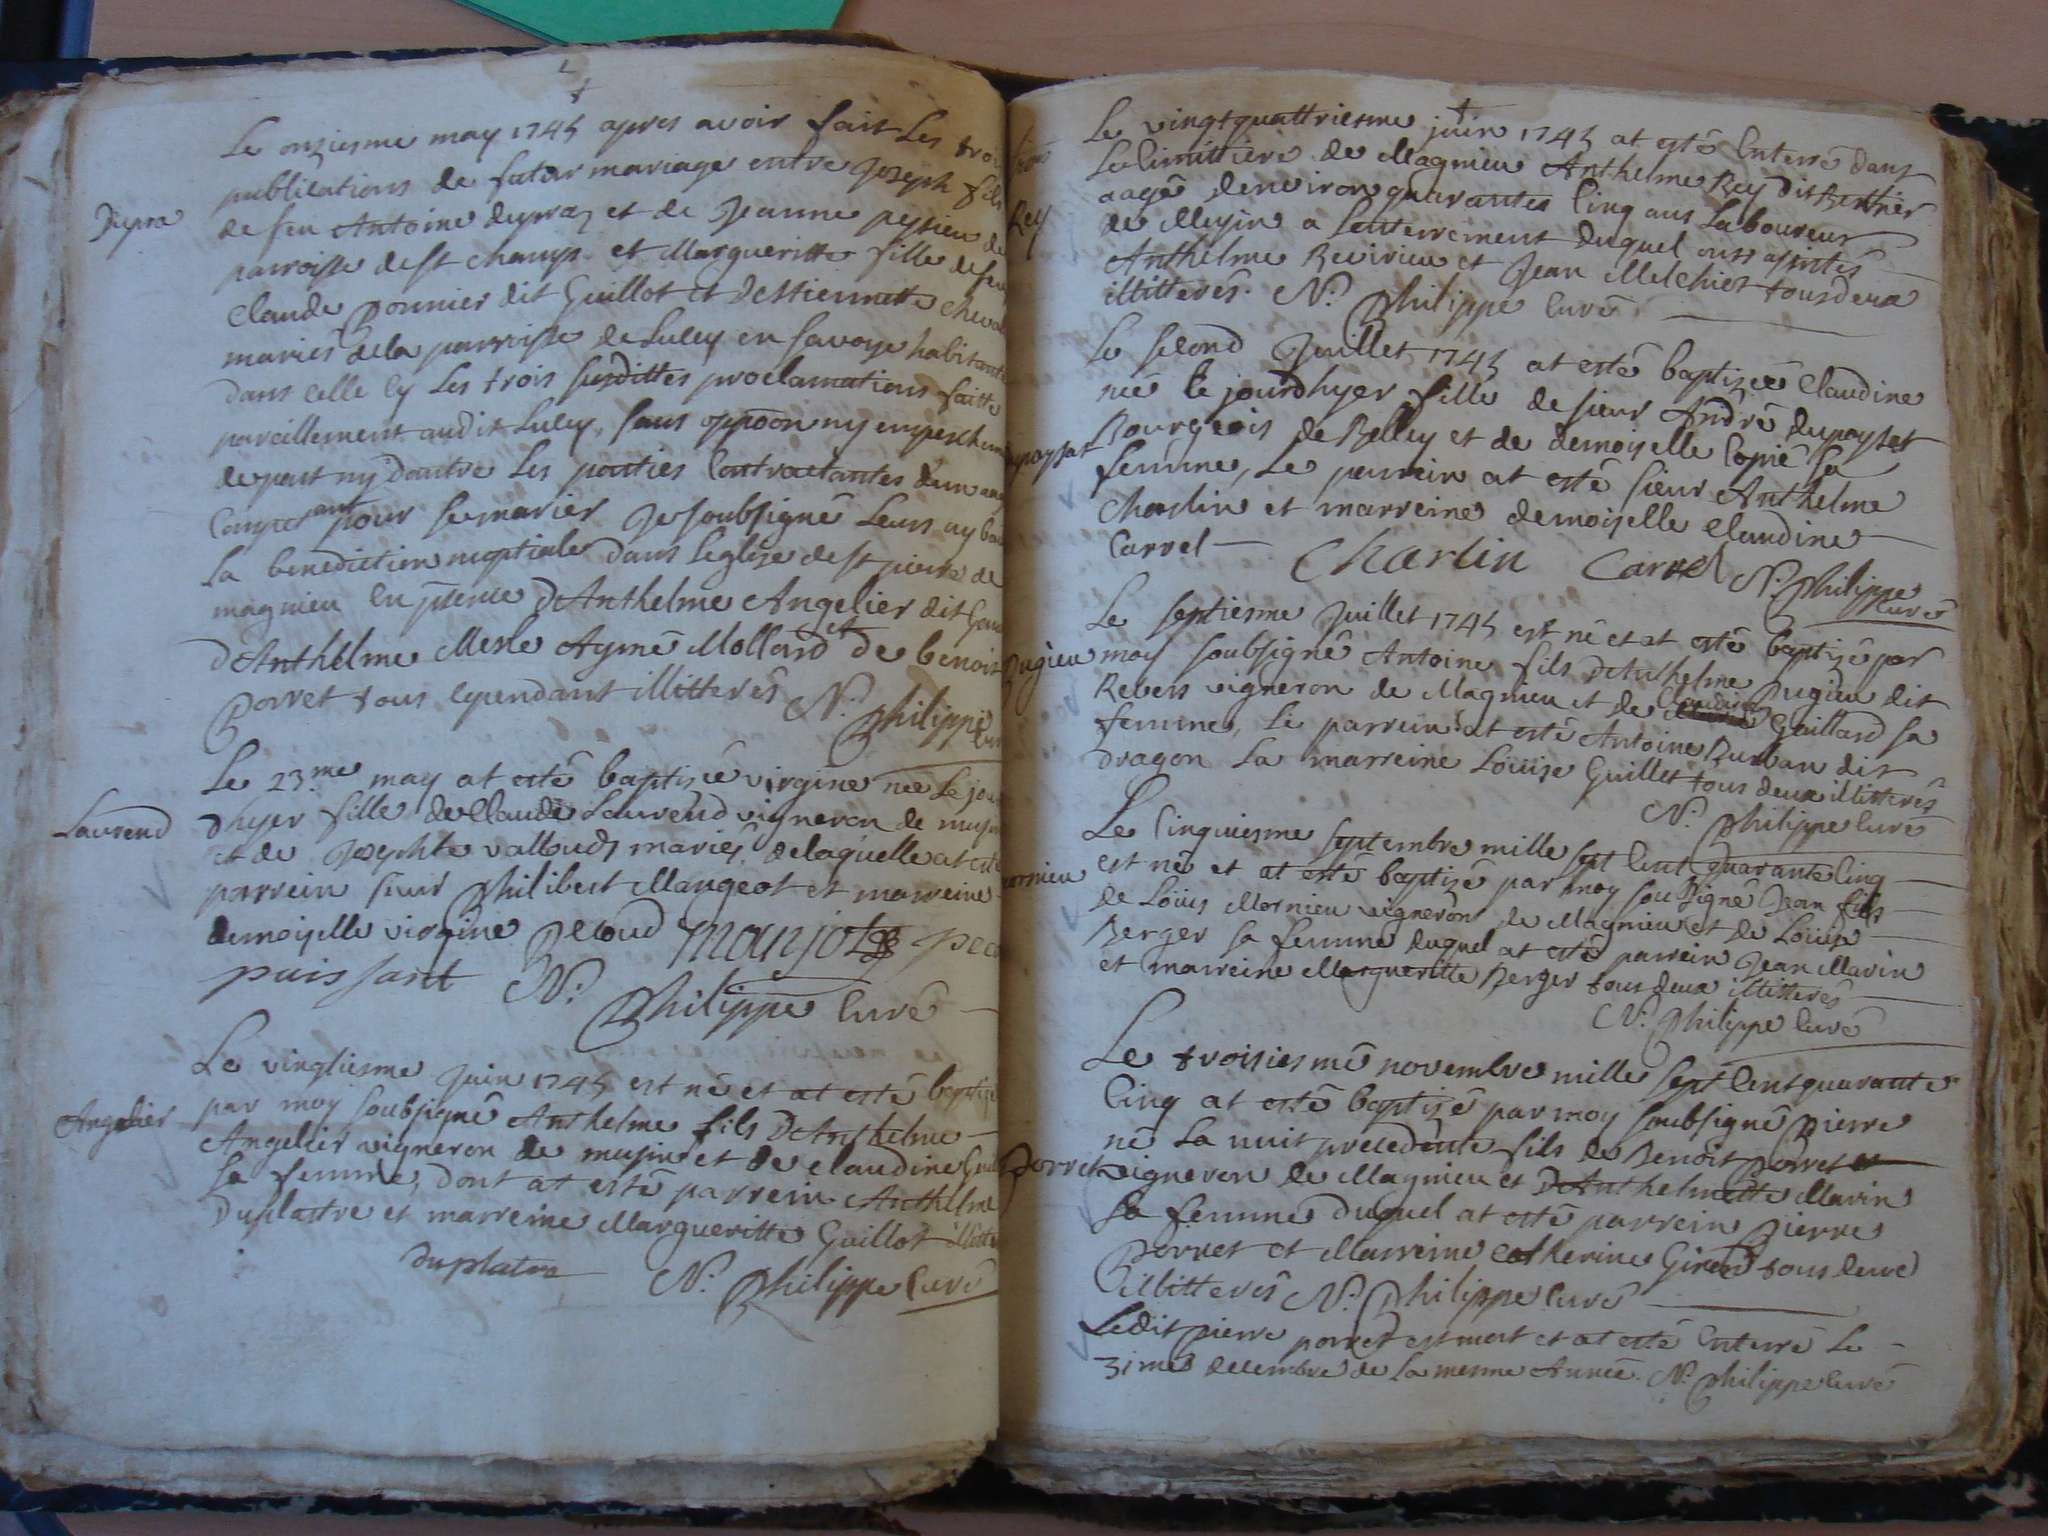 Le onziesme may 1745 apres avoir fait Les trois
publications de futur mariage entre Joseph fils
Dupra
de feu Antoine dupraz et de Jeanne peysieu de
parroisse de st champ et Margueritte fille de feu
Claude Ponnier dit Guillot et destiennette
mariés de la parroisse de Lucey en savoye habitante
dans celle cy Les trois susdittes proclamations faitte
pareillement audit Lucey, sans oppoõn ny empeschem
de part ny dautre Les parties Contractantes
pour se marier Je soubsigné Leurs ay
La benediction nuptiale dans leglise de st pierre de
magnieu en pñce D'Anthelme Angelier dit
D'Anthelme Mesle Aymé Mollard et de benoist
Porret tous cependant illitterés N. Philippe
Le 23.me may at esté baptisée virgine née Le jour
Laurend
dhyer fille de Claude Laurend vigneron de musin
et de Josephte valloud mariés, de laquelle at esté
parrein sieur Philibert Mangeot et marreine
demoiselle virgine Pecoud Manjot pec
puissant N. Philippe Curé
Le vingtiesme Juin 1745 est né et at esté baptisé
Angelier
par moy soubsigné Anthelme fils D'Anthelme
Angelier vigneron de musin et de Claudine
sa femme, dont at esté parrein Anthelme
Duplastre et marreine Margueritte Guillot
duplatre N. Philippe Curé
Le vingtquattriesme juin 1745 at esté Enterré dans
Le Cimittiere de Magnieu Anthelme Rey dit Berthier
Rey
aagé denviron quarantes Cinq ans Laboureur
de Meyin a Lenterrement duquel ont assistés
Anthelme Revirieu et Jean Melchior tous deux
illitterés. N. Philippe Curé
Le second Juillet 1745 at esté baptisée Claudine
née Le jourdhyer fille de sieur André dupoysat
poysat
Bourgeois de Belley et de demoyselle
femme, Le parrein at esté sieur Anthelme
Charlin et marreine demoiselle Claudine
Carrel Charlin Carrel N. Philippe
Curé
Le septiesme Juillet 1745 est né et at esté baptisé par
Pugieu
moy soubsigné Antoine fils D'Anthelme Pugieu dit
Revers vigneron de Magnieu et de Claudine Gaillard sa
femme, Le parrein at esté Antoine Burban dit
dragon La marreine Louise Guillet tous deux illitterés
N. Philippe Curé
Le Cinquiesme septembre mille sept Cent quarante Cinq
est né et at esté baptisé par moy soubsigné Jean fils
ornieu
de Louis Mornieu vigneron de Magnieu et de Louise
Berger sa femme duquel at esté parrein Jean Marin
et marreine Margueritte Berger tous deux illitterés
N. Philippe Curé
Le troisiesme novembre mille sept Cent quarante
Cinq at esté baptisé par moy soubsigné Pierre
né La nuit precedente fils de Benoit Porret
Porret
vigneron de Magnieu et D'Anthelmette Marin
sa femme duquel at esté parrein Pierre
Porret et Marreine Catherine Girerd tous deux
illitterés N. Philippe Curé
Ledit Pierre porret est mort et at esté Enterré Le
31me decembre de La mesme Année. N. Philippe Curé